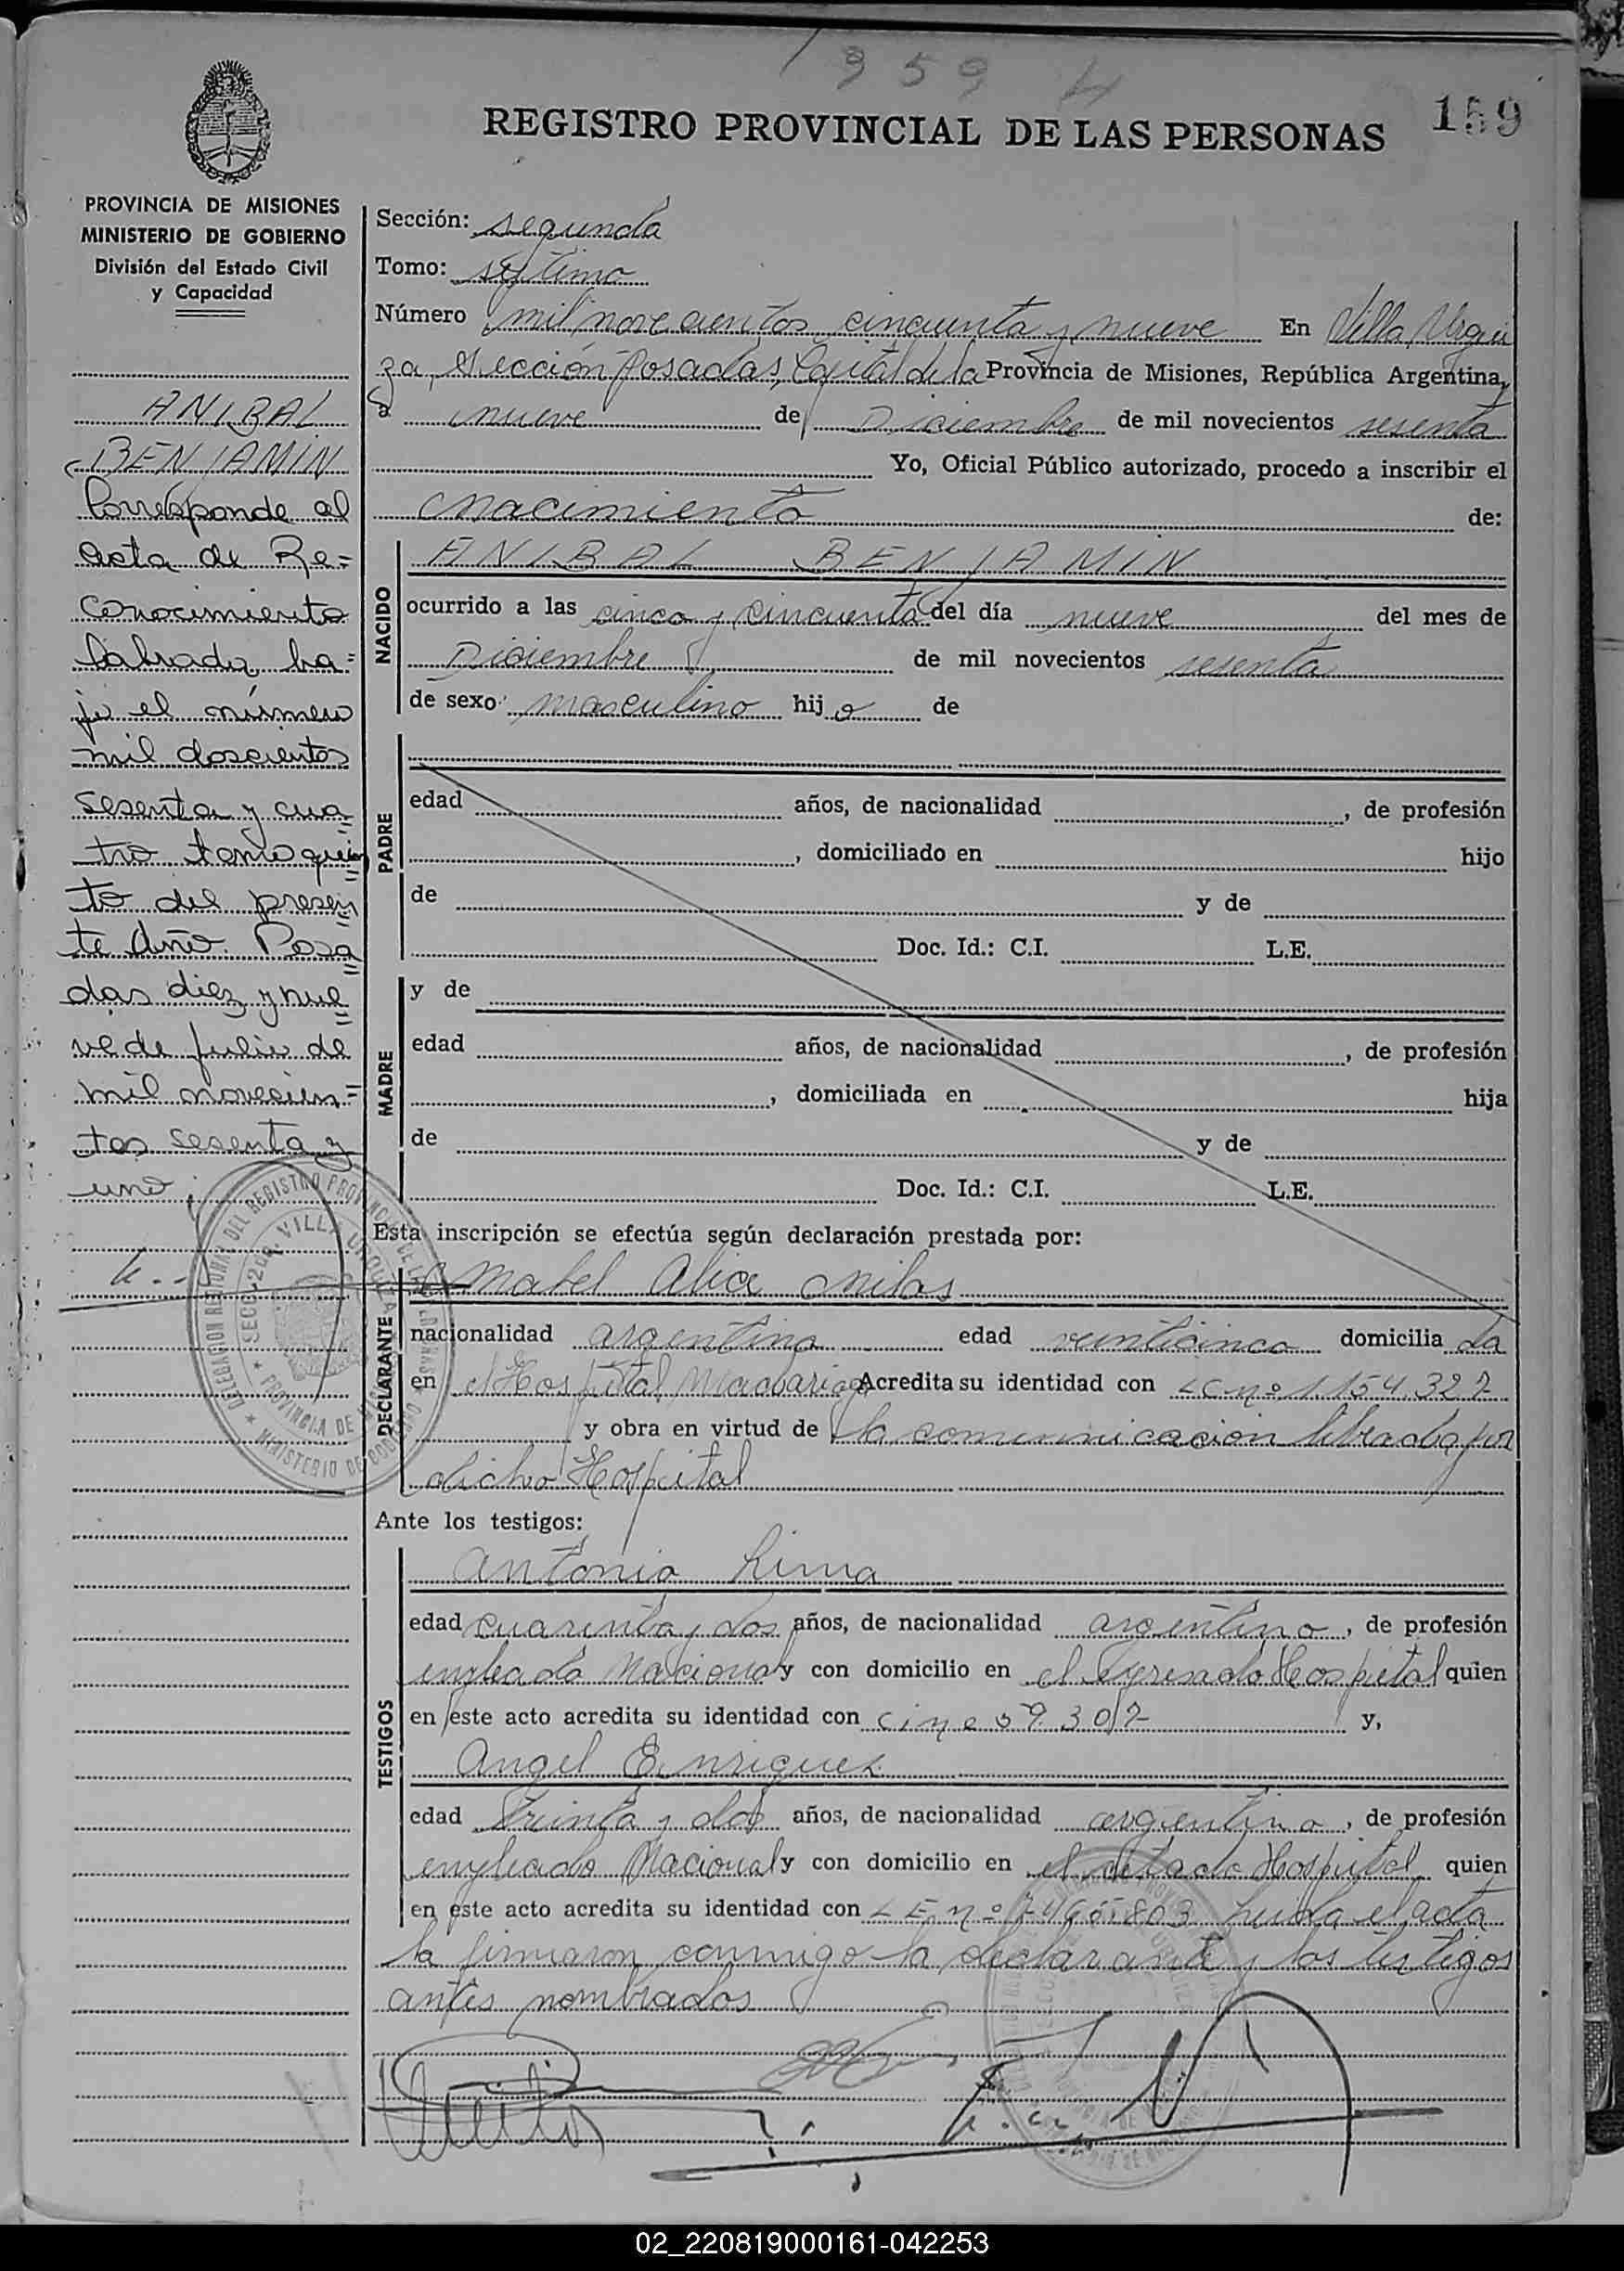 1959 H
REGISTRO PROVINCIAL DE LAS PERSONAS
159
PROVINCIA DE MISIONES
MINISTERIO DE GOBIERNO
División del Estado Civil
y Capacidad
ANIBAL
BENJAMIN
Corresponde al
acta de Re=
conocimiento
labrada ba=
jo el número
mil doscientos
sesenta y cua
tro tomo quin
to del presen
te Año. Posa
das diez y nue
ve de Julio de
mil novecien=
tos sesenta y
uno
Sección: segunda
Tomo: septimo
Número mil novecientos cincuenta y nueve En Villa Urqui
za, Sección Posadas, Capital de la Provincia de Misiones, República Argentina,
a nueve de Diciembre de mil novecientos sesenta
Yo, Oficial Público autorizado, procedo a inscribir el
nacimiento de:
NACIDO
ANIBAL BENJAMIN
ocurrido a las cinco y cincuenta del día nueve del mes de
Diciembre de mil novecientos sesenta
de sexo masculino hijo de
PADRE
edad años, de nacionalidad , de profesión
, domiciliado en hijo
de y de
Doc. Id.: C.I. L.E.
MADRE
y de
edad años, de nacionalidad , de profesión
, domiciliada en hija
de y de
Doc. Id.: C.I. L.E.
Esta inscripción se efectúa según declaración prestada por:
DECLARANTE
Mabel Alice Milas
nacionalidad argentina edad veinticinco domiciliada
en el Hospital Madariaga Acredita su identidad con LC nº 1154.327
y obra en virtud de la comunicación librada por
dicho Hospital
Ante los testigos:
TESTIGOS
Antonio Lima
edad cuarenta y dos años, de nacionalidad argentino, de profesión
empleado Nacional y con domicilio en el expresado Hospital quien
en este acto acredita su identidad con C.I nº 59.307 y,
Angel Enriquez
edad treinta y dos años, de nacionalidad argentino, de profesión
empleado Nacional y con domicilio en el citado Hospital quien
en este acto acredita su identidad con LE nº Leida el acta
la firmaron conmigo la declarante y los testigos
antes nombrados
DELEGACION DEL REGISTRO PROVINCIAL DE LAS PERSONAS
SECC. 2da. VILLA URQUIZA
PROVINCIA DE
MINISTERIO DE GOBIERNO
02_220819000161-042253